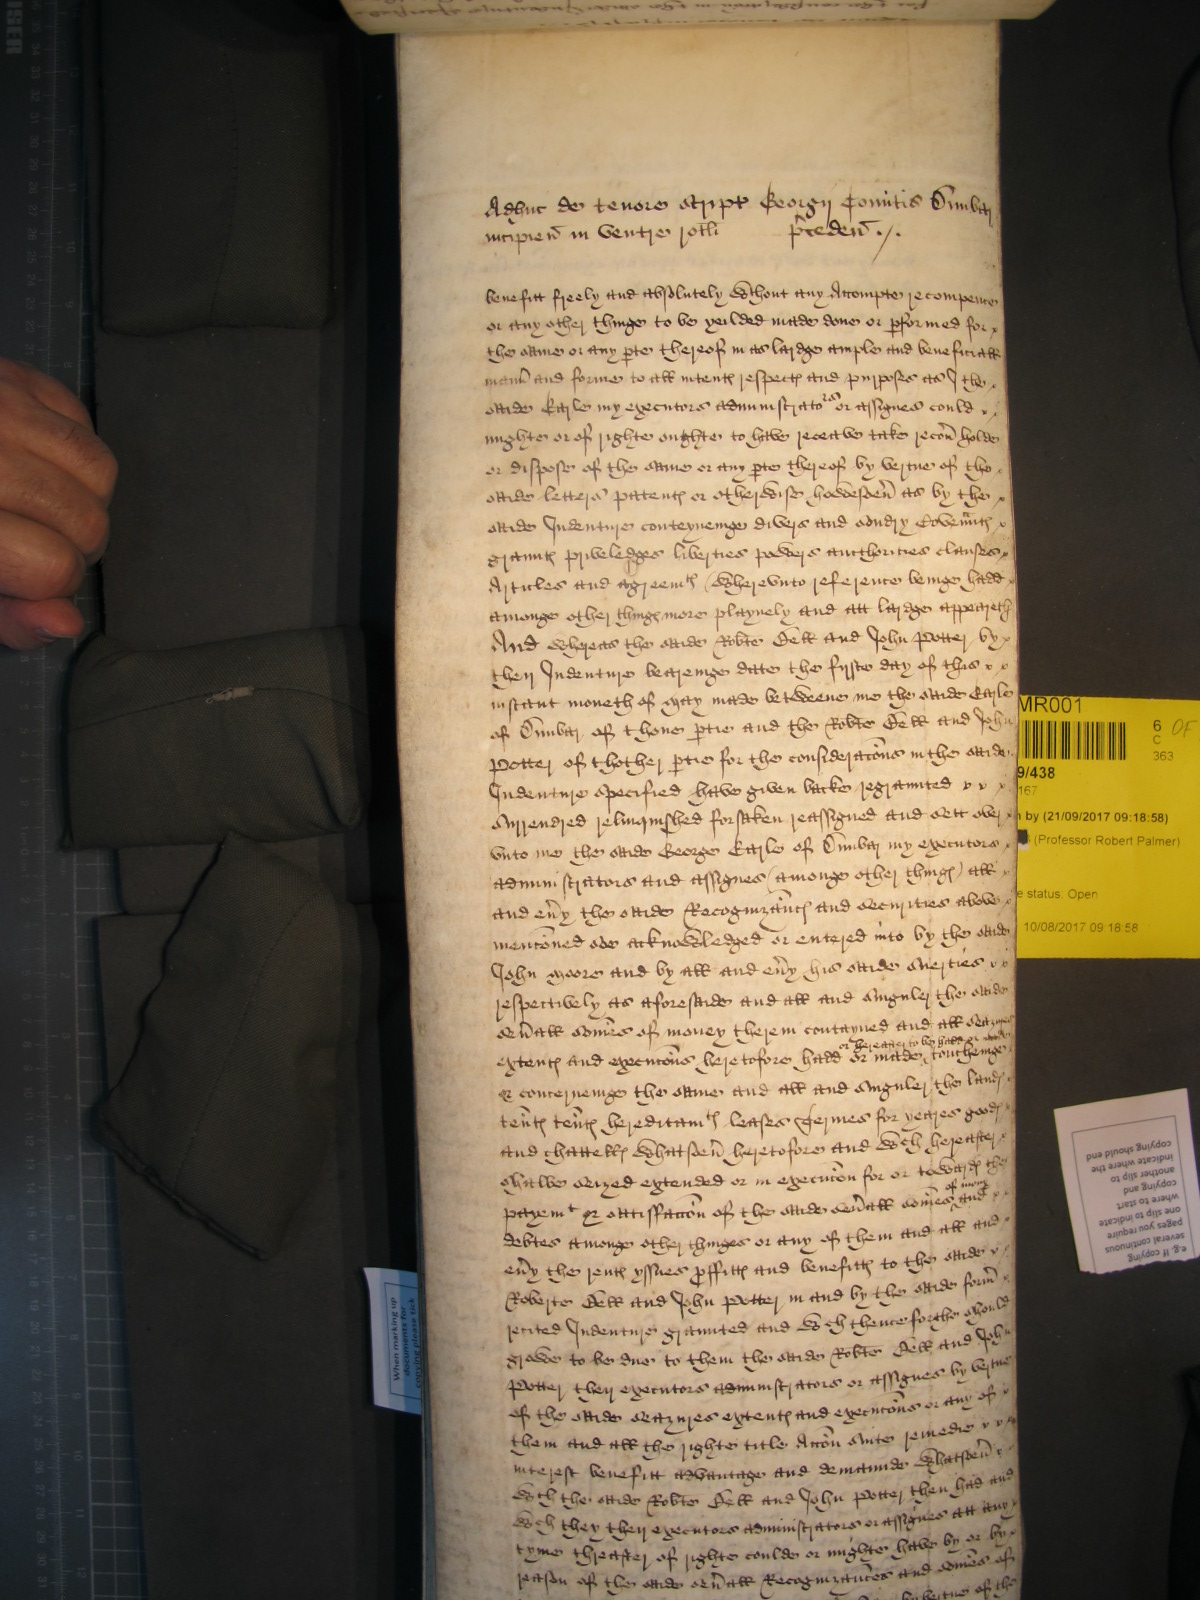 Adhuc de tenore script Georgij Comitis Dunbar
incipien in ventre rotli p̃ceden ./.
benefitt freely and absolutely wthout any Accompte recompence
or any other thinge to be yeilded made done or pformed for
the same or any pte thereof in as lardge ample and beneficiall
mann and forme to all intents respects and purposes as I the
saide Earle my executors administrators or assignes could
mighte or of righte oughte to have receave take recov holde
or dispose of the same or any pte thereof by vertue of the
saide letters patents or otherwise howsoev as by the
saide Indenture conteyneinge divers and sondry Covennts
graunts priveledges liberties powers aucthorities clauses
Articles and agreemts (wherevnto reference beinge hadd
amonge other things more playnely and att lardge appeareth
And whereas the saide Robte Dell and John Potter by
their Indenture beareinge date the firste day of this
instant moneth of May made betweene me the saide Earle
of Dunbar of thone ptie and the Robte Dell and John
Potter of thother ptie for the consideracons in the saide
Indenture specified have given backe regraunted
surrendred relinquished forsaken reassigned and sett over
vnto me the saide George Earle of Dunbar my executors
administrators and assignes (amonge other things) all
and evy the saide Recognizancs and securities above
menconed soe acknowledged or entered into by the saide
John Moore and by all and evy his saide suerties
respectively as aforesaide and all and singuler the saide
sevall somes of money therein contayned and all seazures
extents and execucons heretofore hadd or made
or hereafter to be hadd or made toucheinge
or concerneinge the same and all and singuler the lands
tents hereditamts leases termes for yeares goods
and chattells whatsoev heretofore and wch hereafter
shalbe seized extended or in execucon for or towards the
paymt or satisfaccon of the saide sevall somes of mony and
debtes amonge other thinges or any of them and all and
evy the rents yssues pffitts and benefitts to the saide
Roberte Dell and John Potter in and by the saide form
recited Indenture graunted and wch thenceforthe should
growe to be due to them the saide Robte Dell and John
Potter their executors administrators or assignes by vertue
of the saide seazures extents and execucons or any of
them and all the righte title Accon suite remedie
interest benefitt advantage and demaunde whatsoev
wch the saide Robte Dell and John Potter then had and
wch they their executors administrators or assignes att any
tyme threafter of righte coulde or mighte have by or by
reason of the saide sevall Recognizances and somes of
by vertue of the
MR001
6
C
363
OF
9/438
167
n by (21/09/2017 09:18:58)
(Professor Robert Palmer)
e status: Open
10/08/2017 09:18:58
e.g. If copying
several continuous
pages you require
one slip to indicate
where to start
copying and
another slip to
indicate where the
copying should end
When marking up
documents for
copying please tick